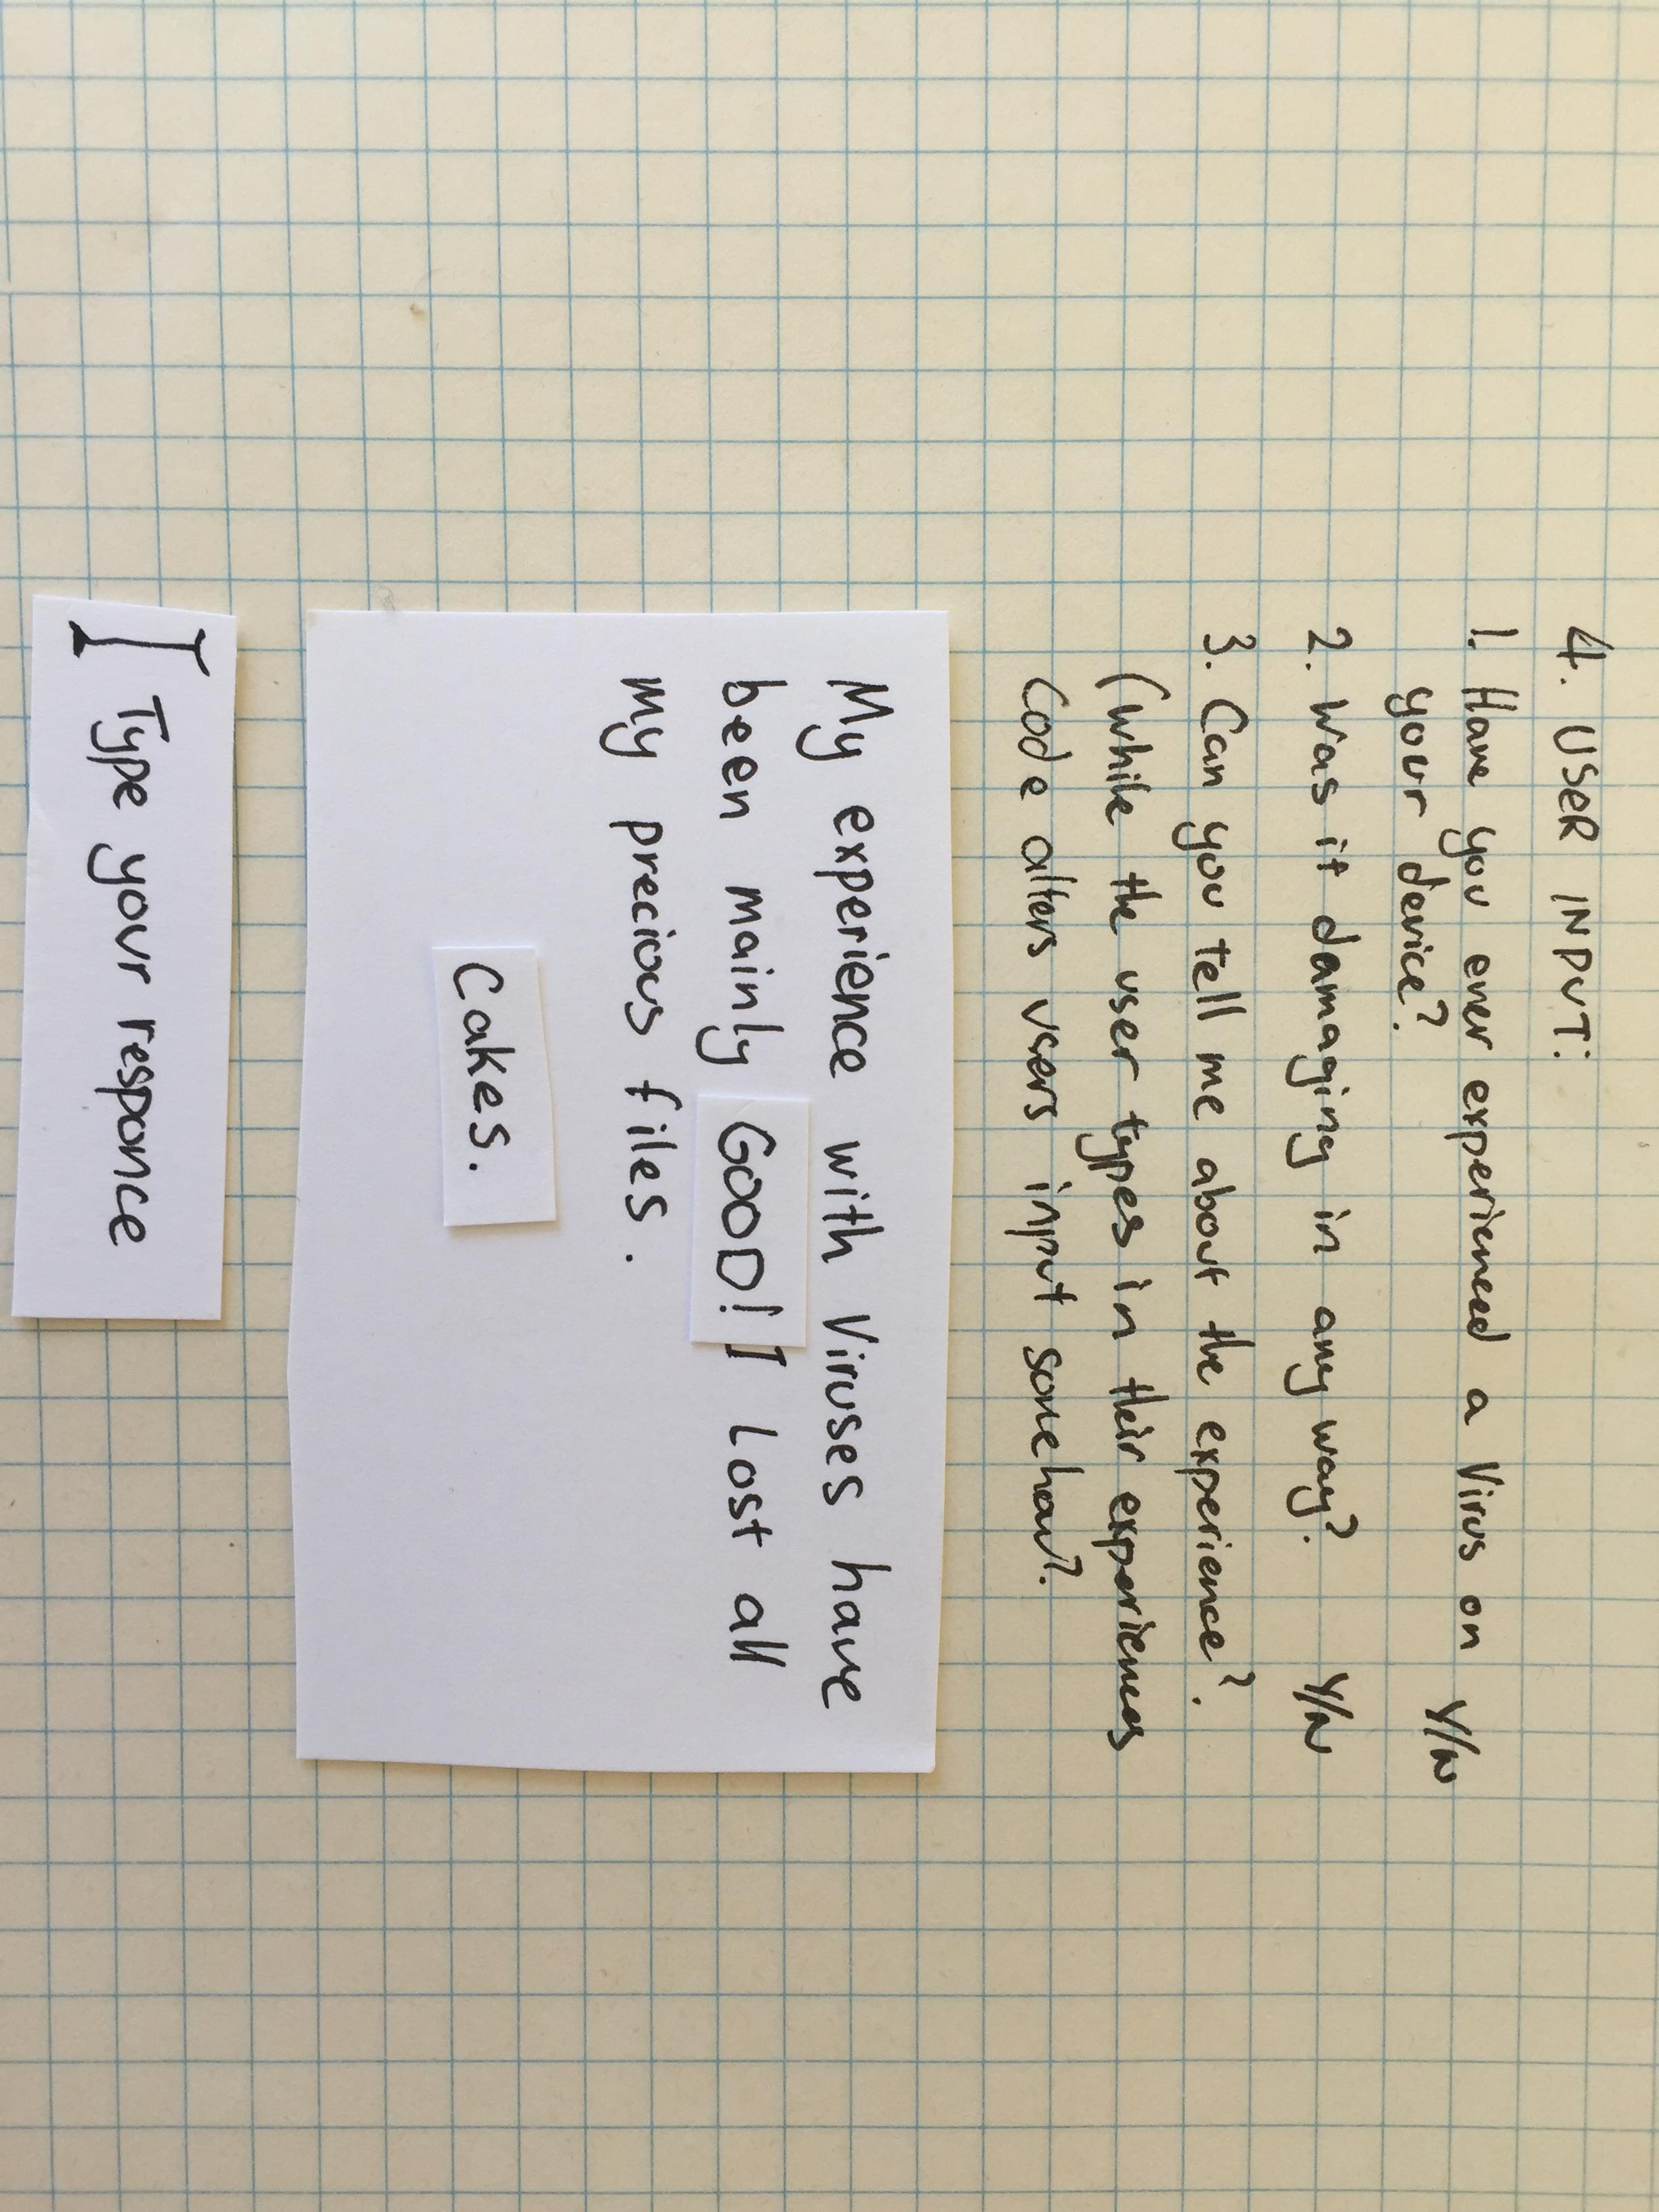 4. USER INPUT:
1. Have you ever experienced a Virus on Y/N
your device?
2. Was it damaging in any way? Y/N
3. Can you tell me about the experience?
(While the user types in their experiences
Code alters users input somehow?
My experience with Viruses have
been mainly GOOD! I Lost all
my precious files.
Cakes.
Type your responce